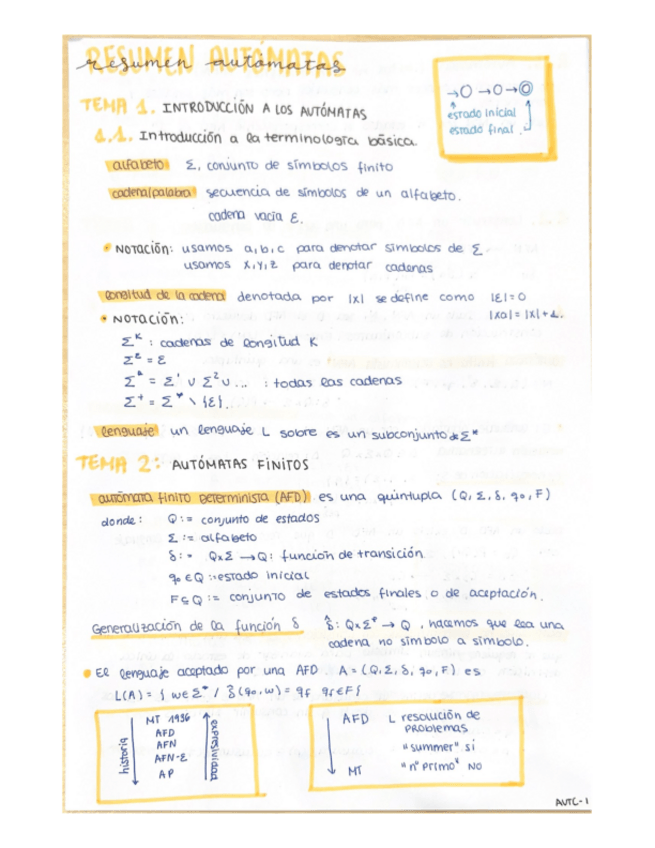 RESUMEN AUTÓMATAS
resumen autómatas
→O →O→◎
estado inicial
estado final
TEMA 1. INTRODUCCIÓN A LOS AUTÓMATAS
1.1. Introducción a la terminología básica.
alfabeto Σ, conjunto de símbolos finito
cadena/palabra secuencia de símbolos de un alfabeto.
cadena vacía ε.
• NOTACIÓN: usamos a,b,c para denotar símbolos de Σ
usamos x,y,z para denotar cadenas
longitud de la cadena denotada por |x| se define como |ε|=0
|xa|=|x|+1.
• NOTACIÓN:
Σᴷ : cadenas de longitud K
= ε
= Σ¹ ∪ Σ² ∪ ... : todas las cadenas
Σ⁺ = Σ* \ {ε}.
lenguaje un lenguaje L sobre es un subconjunto de Σ*
TEMA 2: AUTÓMATAS FINITOS
autómata finito determinista (AFD) es una quintupla (Q, Σ, δ, q₀, F)
donde: Q := conjunto de estados
Σ := alfabeto
δ := QxΣ → Q : función de transición
q₀ ∈ Q := estado inicial
F ⊆ Q := conjunto de estados finales o de aceptación.
Generalización de la función δ δ̂ : QxΣ* → Q , hacemos que lea una
cadena no símbolo a símbolo.
• El lenguaje aceptado por una AFD A = (Q, Σ, δ, q₀, F) es
L(A) = { w ∈ Σ* / δ̂(q₀, w) = qf qf ∈ F}
historia
MT 1936
AFD
AFN
AFN-ε
AP
expresividad
AFD L resolución de
problemas
"summer" sí
MT "nº primo" NO
AUTC-1